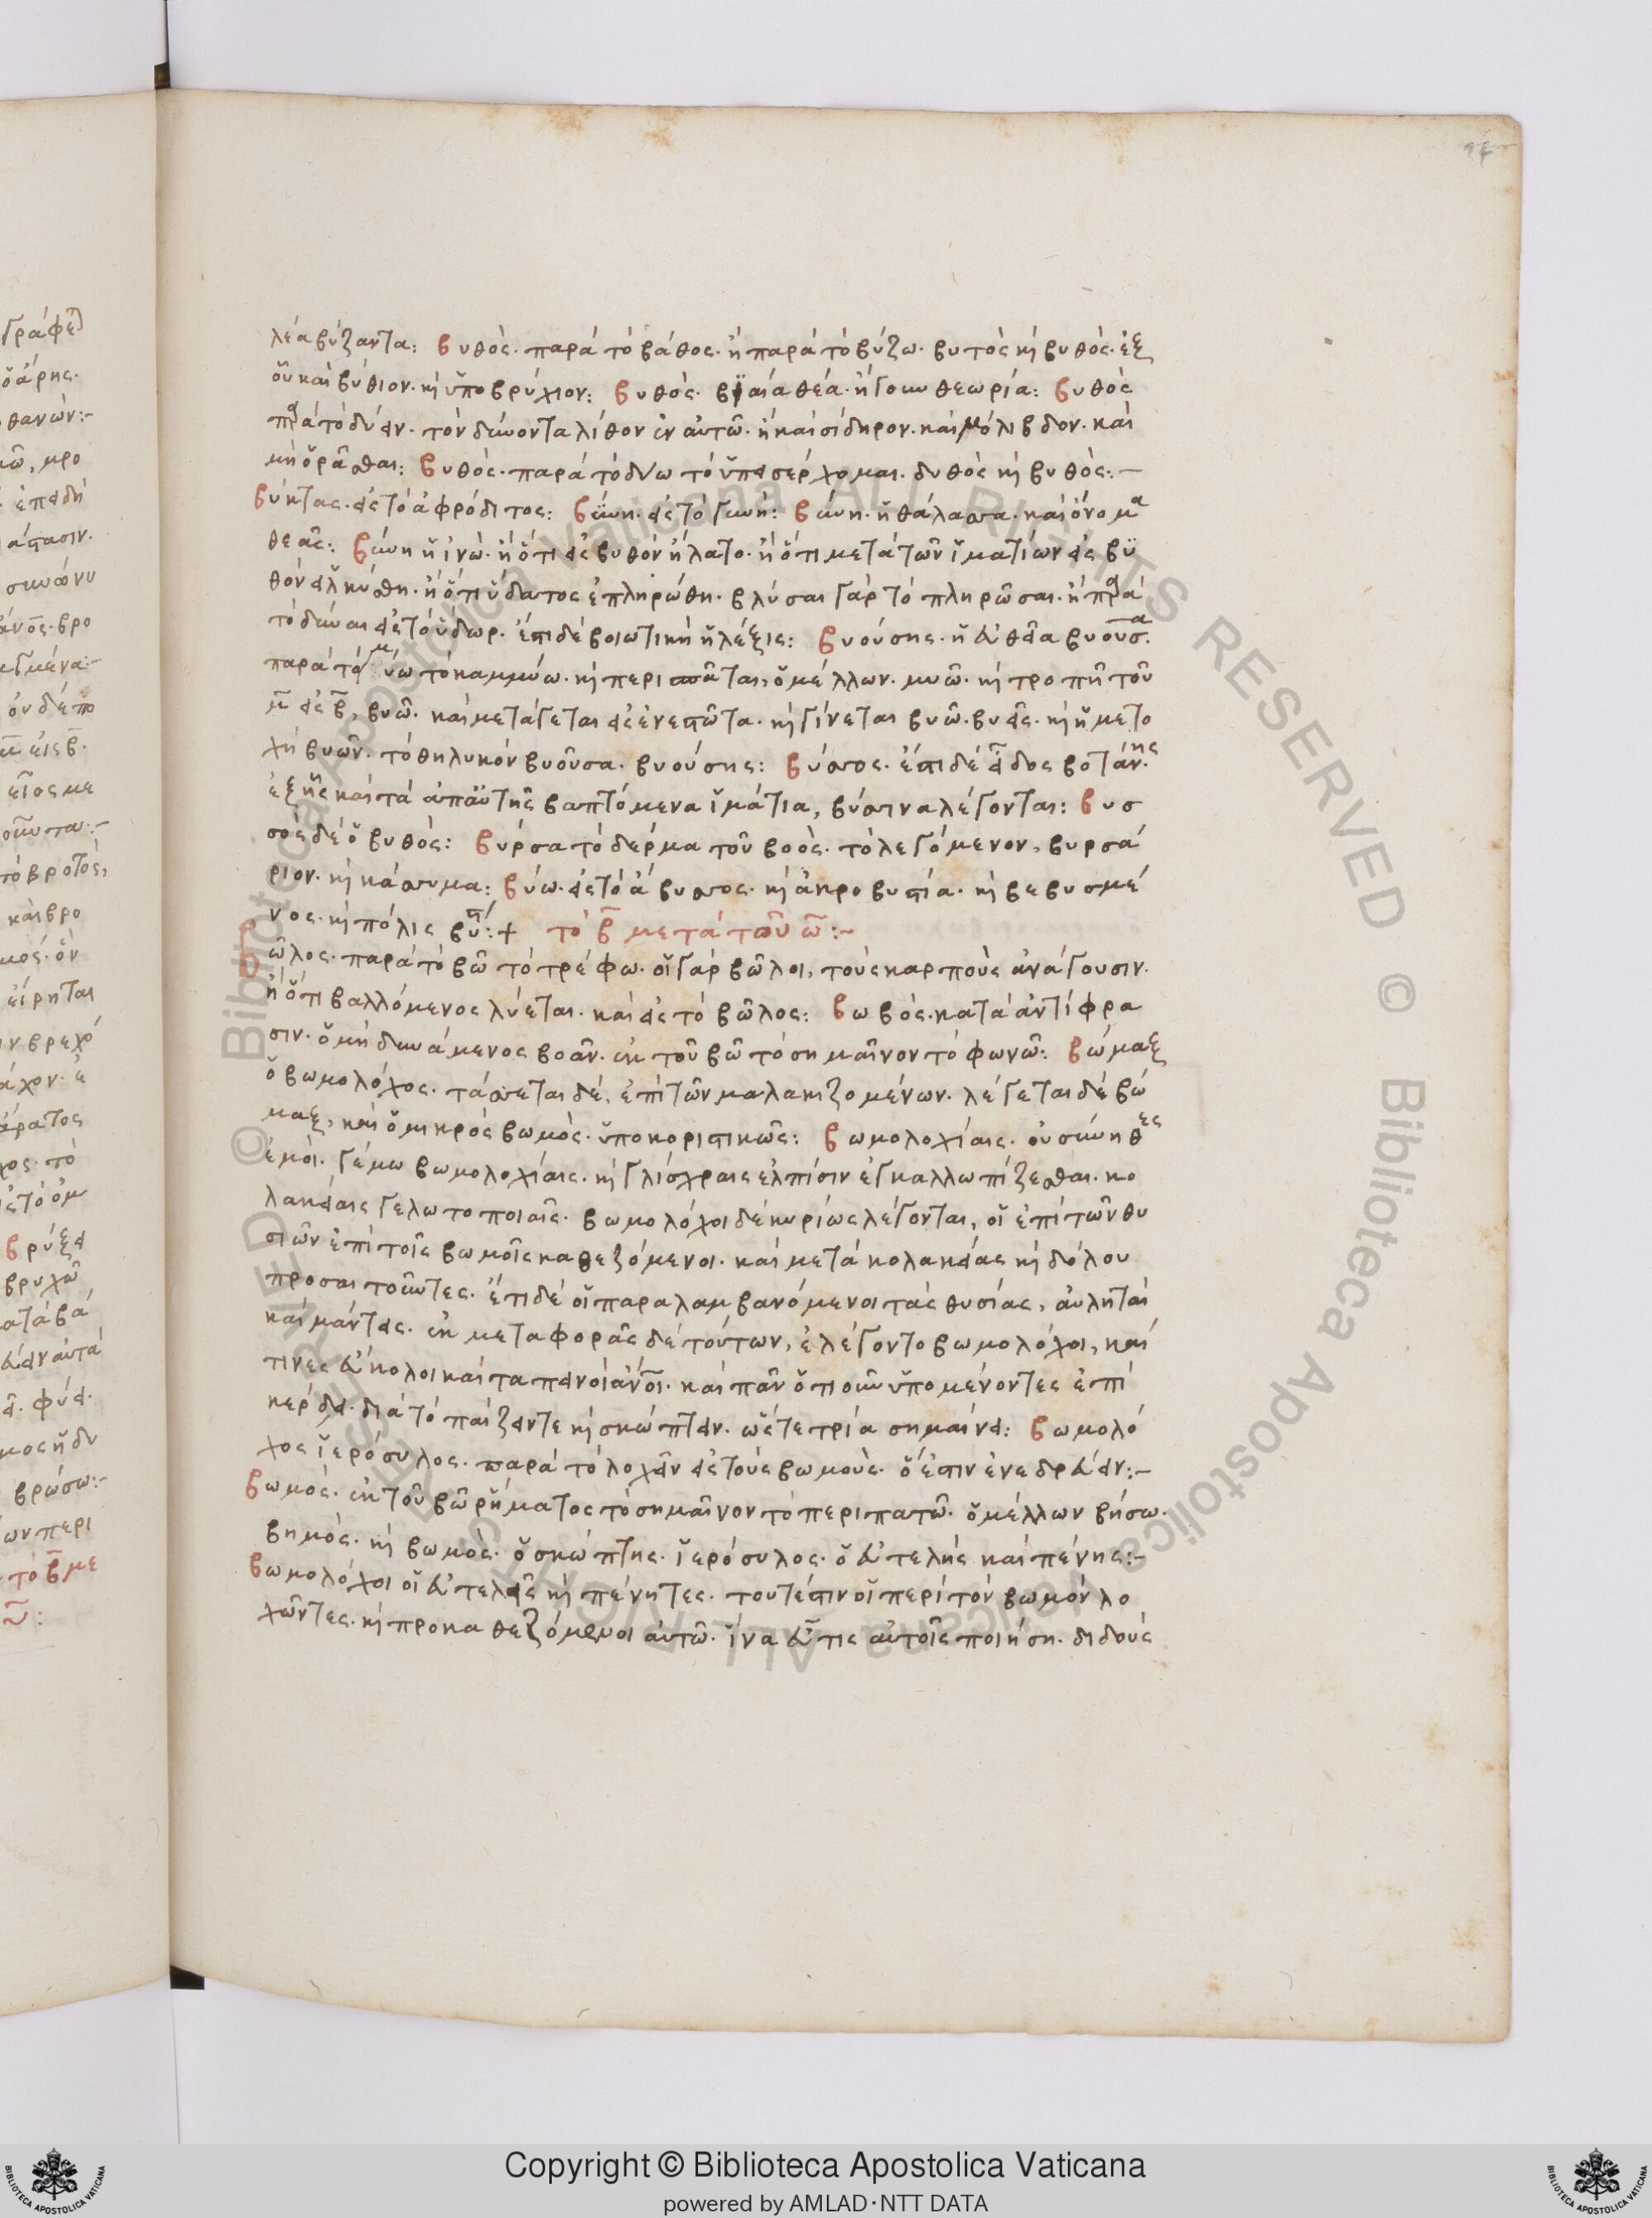 λέα βύζαντα: βυθός· παρὰ τὸ βάθος· ἢ παρὰ τὸ βύζω· βυτὸς καὶ βυθός· ἐξ
οὗ καὶ βύθιον· καὶ ὑποβρύχιον: βυθός· βιαία θέα· ἤγουν θεωρία: βυθὸς
παρὰ τὸ δύειν· τὸν δύνοντα λίθον ἐν αὐτῶ· ἢ καὶ σίδηρον· καὶ μόλιβδον· καὶ
μὴ ὁρᾶσθαι: βυθός· παρὰ τὸ δύω τὸ ὑπεισέρχομαι· δυθὸς καὶ βυθός:–
βύκτας· εἰς τὸ ἀφρόδιτος: βύνη· εἰς τὸ γυνή: βύνη· ἡ θάλασσα· καὶ ὄνομα
θεᾶς: βύνη ἡ ἰνώ· ἢ ὅτι εἰς βυθὸν ἥλατο· ἢ ὅτι μετὰ τῶν ἱματίων εἰς βυ
θὸν εἱλκύσθη· ἢ ὅτι ὕδατος ἐπληρώθη· βλύσαι γὰρ τὸ πληρῶσαι· ἢ παρὰ
τὸ δῦναι εἰς τὸ ὕδωρ· ἔστι δὲ βοιωτικὴ ἡ λέξις: βυούσης· ἡ εὐθεῖα βυοῦσα·
παρὰ τὸ μύω τὸ καμμύω· καὶ περισπᾶται, ὁ μέλλων· μυῶ· καὶ τροπῆ τοῦ
μ εἰς β, βυῶ· καὶ μετάγεται εἰς ἐνεστῶτα· καὶ γίνεται βυῶ· βυεῖς· καὶ ἡ μετο
χὴ βυῶν· τὸ θηλυκὸν βυοῦσα· βυούσης: βύσσος· ἔστι δὲ εἶδος βοτάνης
ἐξ ἧς καὶ τὰ ἀπ' αὐτῆς βαπτόμενα ἱμάτια, βύσσινα λέγονται: βυσ
σὸς δὲ ὁ βυθός: βύρσα τὸ δέρμα τοῦ βοός· τὸ λεγόμενον, βυρσά
ριον· καὶ κάσσυμα: βύω· εἰς τὸ ἄβυσσος· καὶ ἀκροβυστία· καὶ βεβυσμέ
νος· καὶ πόλις βυστί:+ τὸ β μετὰ τοῦ ω:–
βῶλος· παρὰ τὸ βῶ τὸ τρέφω· οἱ γὰρ βῶλοι, τοὺς καρποὺς ἀνάγουσιν·
ἢ ὅτι βαλλόμενος λύεται· καὶ εἰς τὸ βῶλος: βωβός· κατὰ ἀντίφρα
σιν· ὁ μὴ δυνάμενος βοᾶν· ἐκ τοῦ βῶ τὸ σημαῖνον τὸ φωνῶ: βώμαξ
ὁ βωμολόχος· τάσσεται δὲ, ἐπὶ τῶν μαλακιζομένων· λέγεται δὲ βώ
μαξ, καὶ ὁ μικρὸς βωμός· ὑποκοριστικῶς: βωμολοχίαις· οὐ σύνηθες
ἐμοί· γέμω βωμολοχίαις· καὶ γλίσχραις ἐλπίσιν ἐγκαλλωπίζεσθαι· κο
λακείαις γελωτοποιαῖς· βωμολόχοι δὲ κυρίως λέγονται, οἱ ἐπὶ τῶν θυ
σιῶν ἐπὶ τοῖς βωμοῖς καθεζόμενοι· καὶ μετὰ κολακείας καὶ δόλου
προσαιτοῦντες· ἔτι δὲ οἱ παραλαμβανόμενοι ταῖς θυσίαις, αὐληταὶ
καὶ μάντεις· ἐκ μεταφορᾶς δὲ τούτων, ἐλέγοντο βωμολόχοι, καὶ
τινες εὔκολοι καὶ ταπεινοὶ ἄνθρωποι· καὶ πᾶν ὁτιοῦν ὑπομένοντες ἐπὶ
κέρδει· διὰ τὸ παίζειν τε καὶ σκώπτειν· ὥστε τρία σημαίνει: βωμολό
χος ἱερόσυλος· παρὰ τὸ λοχεῖν εἰς τοὺς βωμούς· ὅ ἐστιν ἐνεδρεύειν:–
βωμός· ἐκ τοῦ βῶ ῥήματος τὸ σημαῖνον τὸ περιπατῶ· ὁ μέλλων βήσω·
βημός· καὶ βωμός· ὁ σκώπτης· ἱερόσυλος· ὁ εὐτελὴς καὶ πένης:–
βωμολόχοι οἱ εὐτελεῖς καὶ πένητες· τουτέστιν οἱ περὶ τὸν βωμὸν λο
χῶντες· καὶ προκαθεζόμενοι αὐτῶ· ἵνα εὖ τις αὐτοῖς ποιήση· διδοὺς
Copyright © Biblioteca Apostolica Vaticana
powered by AMLAD·NTT DATA